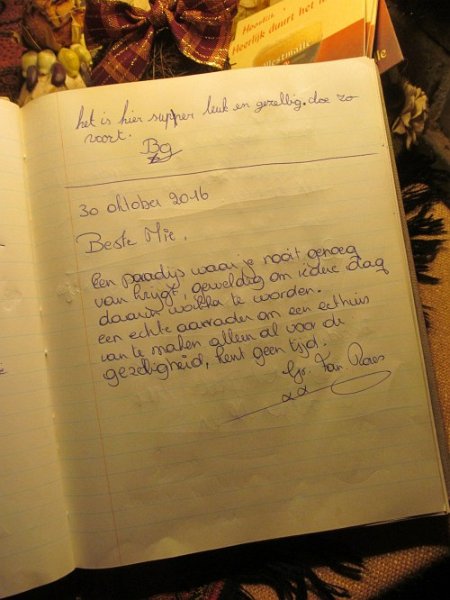 Heerlijk
Heerlijk duurt het
het is hier supper leuk en gezellig. doe zo
voort.
Bg
30 oktober 2016
Beste Mie,
Een paradijs waar je nooit genoeg
van krijgt, geweldig om iedere dag
daarin wakker te worden.
een echte aanrader om een eethuis
van te maken alleen al voor de
gezelligheid, kent geen tijd.
Gr. Fan Roos
xx